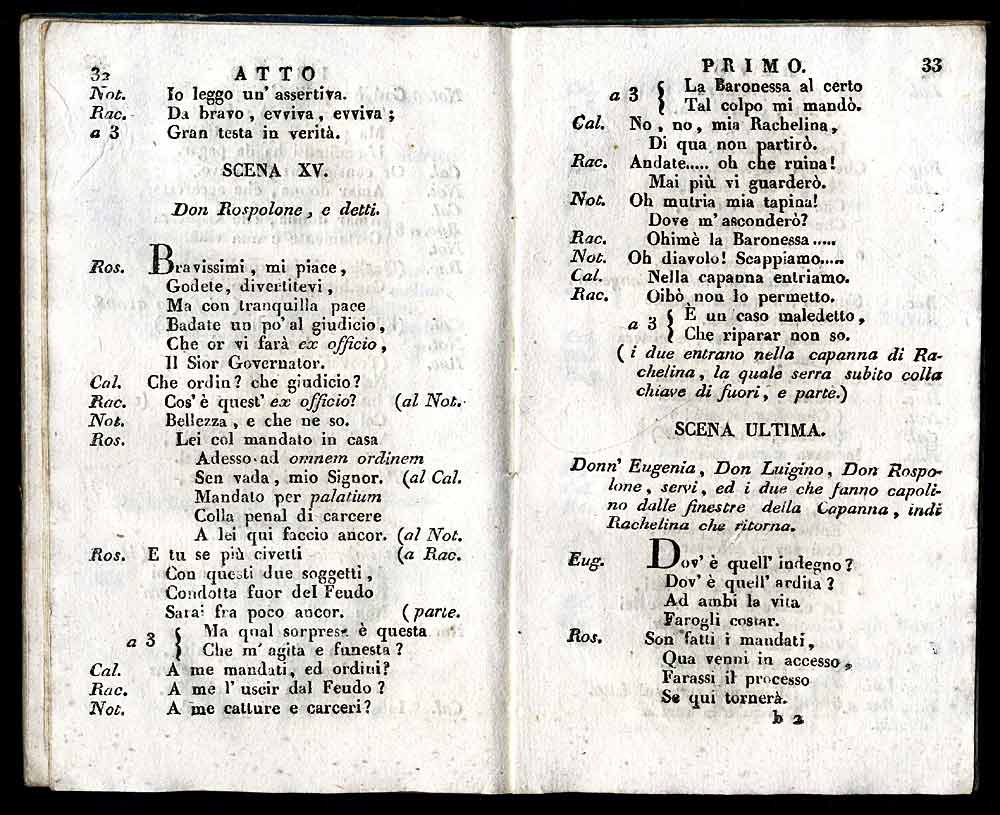 32 ATTO
Not. Io leggo un' assertiva.
Rac. Da bravo, evviva, evviva;
a 3 Gran testa in verità.
SCENA XV.
Don Rospolone, e detti.
Ros. Bravissimi, mi piace,
Godete, divertitevi,
Ma con tranquilla pace
Badate un po' al giudicio,
Che or vi farà ex officio,
Il Sior Governator.
Cal. Che ordin? che giudicio?
Rac. Cos' è quest' ex officio? (al Not.
Not. Bellezza, e che ne so.
Ros. Lei col mandato in casa
Adesso ad omnem ordinem
Sen vada, mio Signor. (al Cal.
Mandato per palatium
Colla penal di carcere
A lei qui faccio ancor. (al Not.
Ros. E tu se più civetti (a Rac.
Con questi due soggetti,
Condotta fuor del Feudo
Sarai fra poco ancor. (parte.
a 3 { Ma qual sorpresa è questa
Che m' agita e funesta?
Cal. A me mandati, ed ordini?
Rac. A me l' uscir dal Feudo?
Not. A me catture e carceri?
PRIMO. 33
a 3 { La Baronessa al certo
Tal colpo mi mandò.
Cal. No, no, mia Rachelina,
Di qua non partirò.
Rac. Andate..... oh che ruina!
Mai più vi guarderò.
Not. Oh mutria mia tapina!
Dove m' asconderò?
Rac. Ohimè la Baronessa.....
Not. Oh diavolo! Scappiamo.....
Cal. Nella capanna entriamo.
Rac. Oibò non lo permetto.
a 3 { È un caso maledetto,
Che riparar non so.
( i due entrano nella capanna di Ra-
chelina, la quale serra subito colla
chiave di fuori, e parte.)
SCENA ULTIMA.
Donn' Eugenia, Don Luigino, Don Rospo-
lone, servi, ed i due che fanno capoli-
no dalle finestre della Capanna, indi
Rachelina che ritorna.
Eug. Dov' è quell' indegno?
Dov' è quell' ardita?
Ad ambi la vita
Farogli costar.
Ros. Son fatti i mandati,
Qua venni in accesso,
Farassi il processo
Se qui tornerà.
b 2